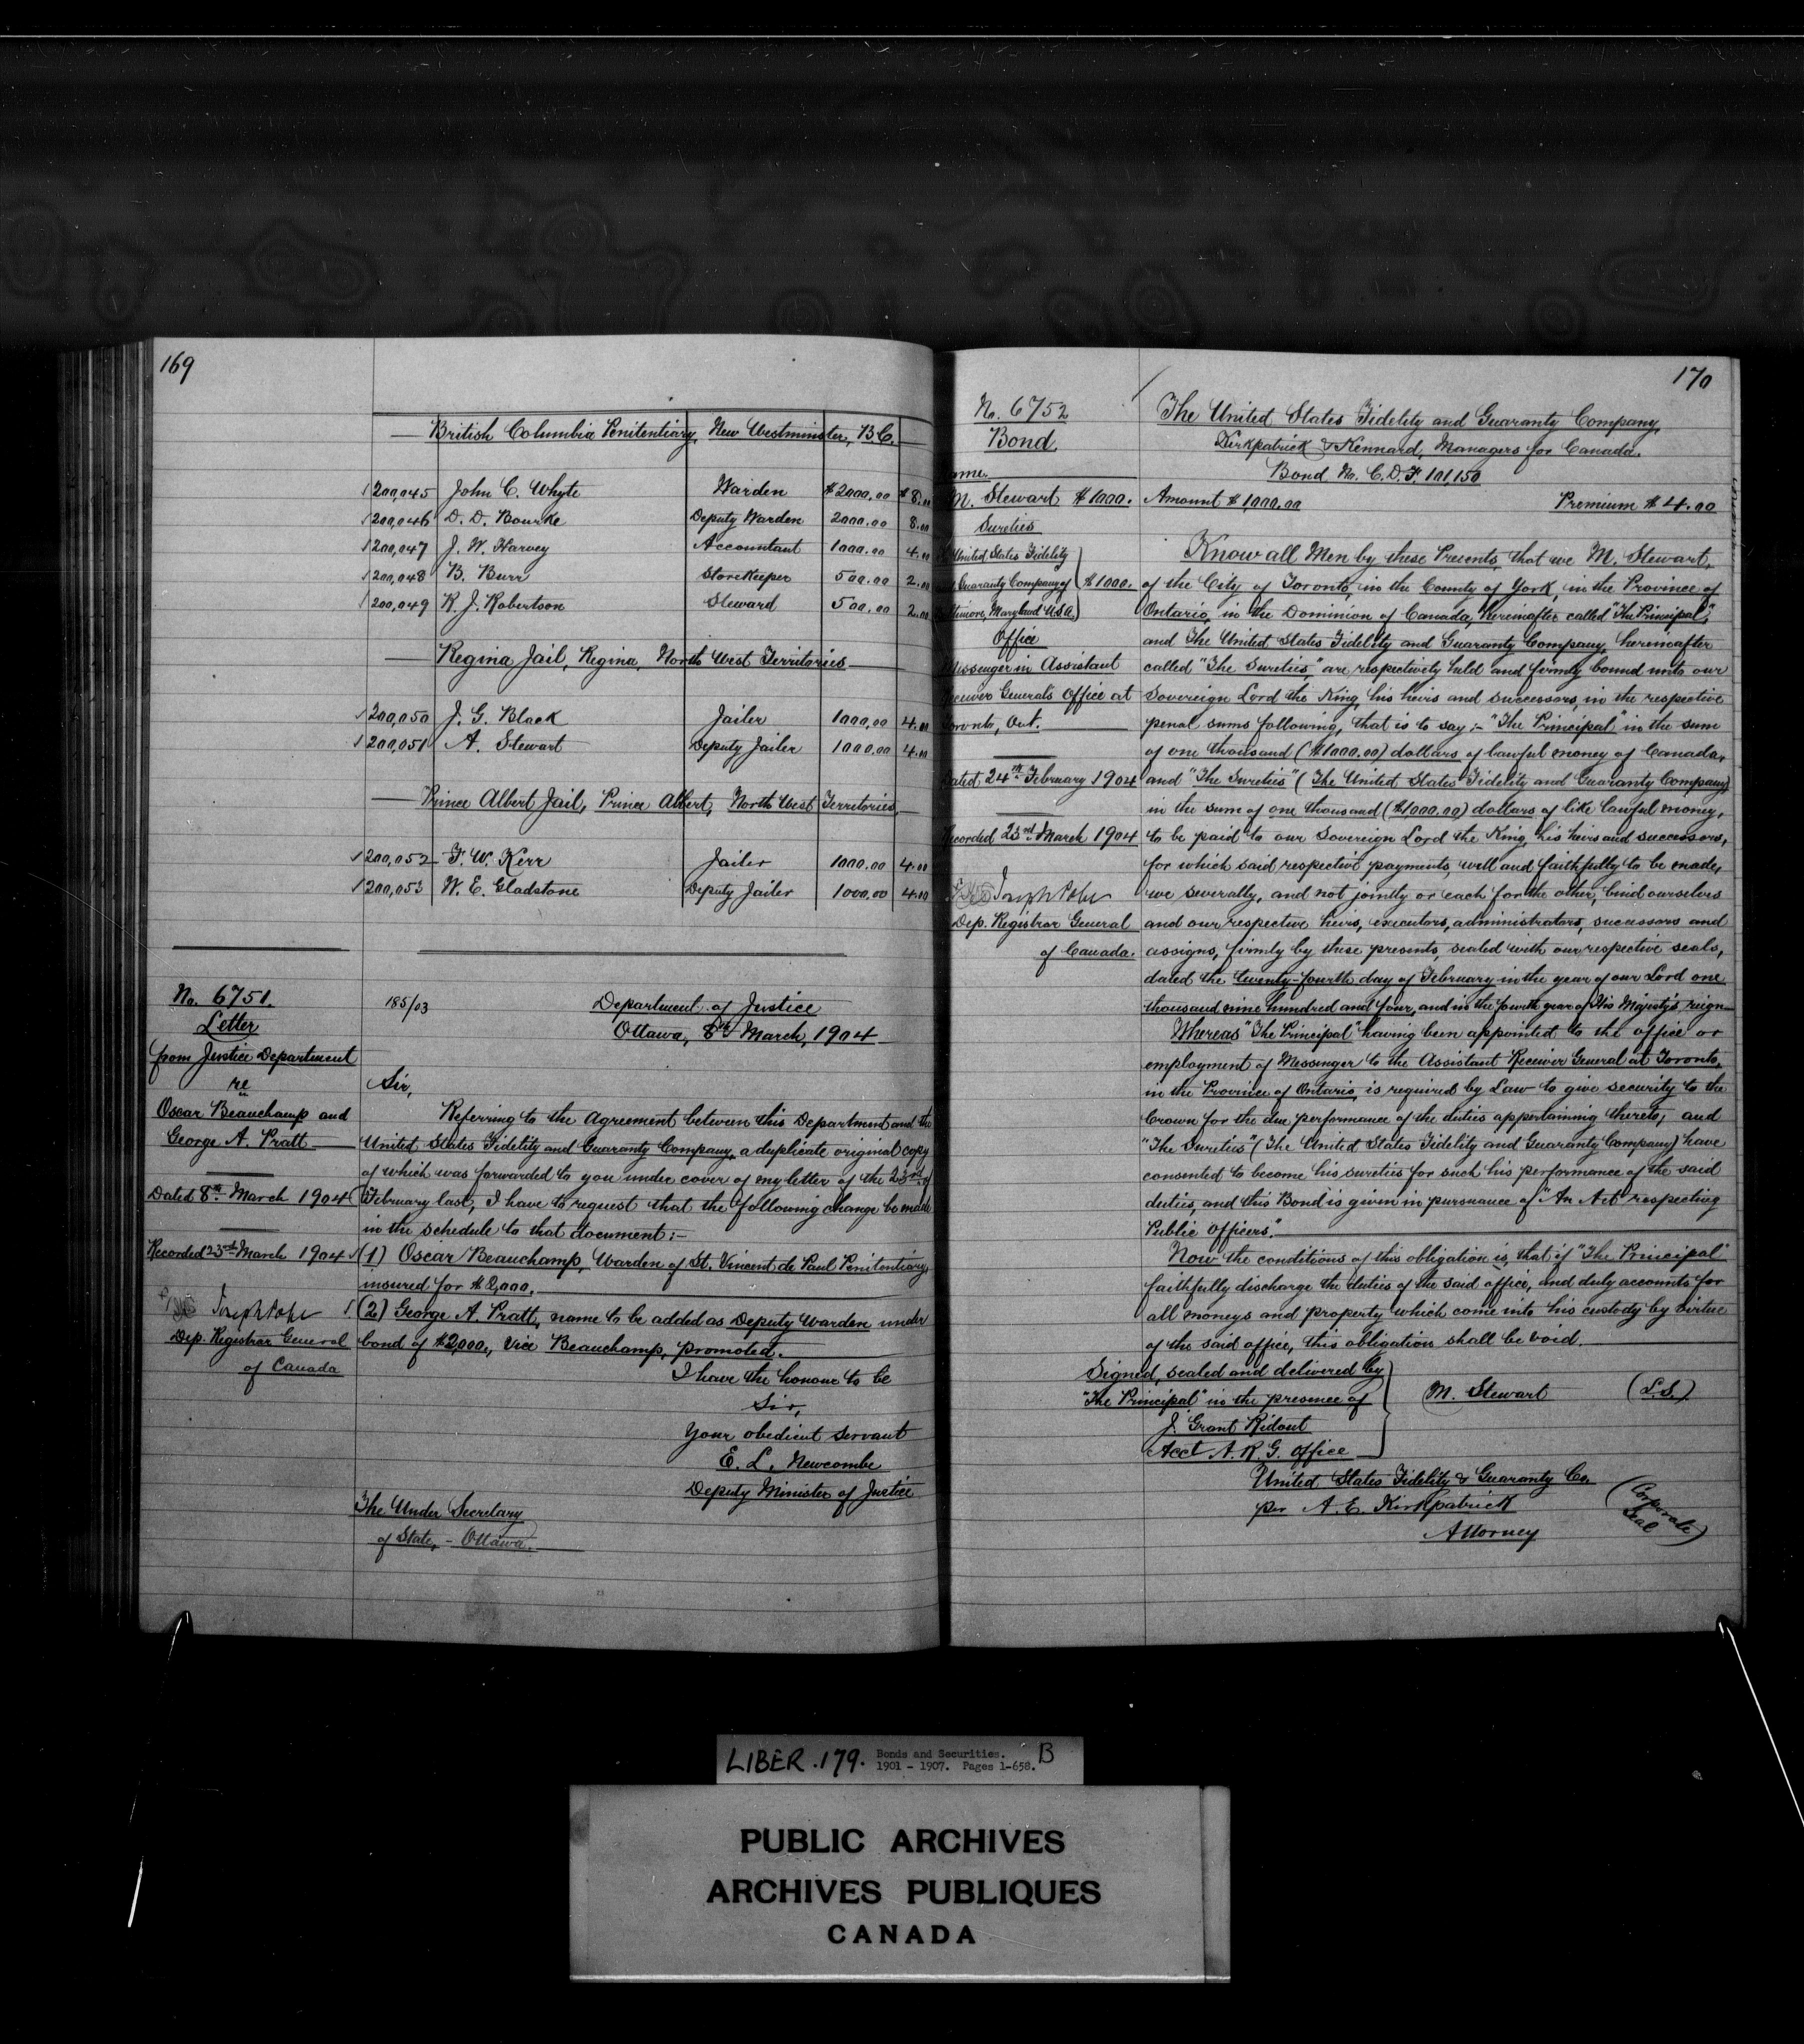 169
British Columbia Penitentiary, New Westminster, B.C.
200,045 John C. Whyte Warden $2000.00 $8.00
200,046 D. D. Bourke Deputy Warden 2000.00 8.00
200,047 J. W. Harvey Accountant 1000.00 4.00
200,048 B. Burr Storekeeper 500.00 2.00
200,049 R. J. Robertson Steward 500.00 2.00
Regina Jail, Regina, North West Territories
200,050 J. G. Black Jailer 1000.00 4.00
200,051 A. Stewart Deputy Jailer 1000.00 4.00
Prince Albert Jail, Prince Albert, North West Territories
200,052 F. W. Kerr Jailer 1000.00 4.00
200,053 W. E. Gladstone Deputy Jailer 1000.00 4.00
No. 6751.
Letter
from Justice Department
re
Oscar Beauchamp and
George A. Pratt
Dated 8th March 1904
Recorded 23rd March 1904
Joseph Pope
Dep. Registrar General
of Canada
185/03
Department of Justice
Ottawa, 8th March, 1904
Sir,
Referring to the Agreement between this Department and the
United States Fidelity and Guaranty Company, a duplicate original copy
of which was forwarded to you under cover of my letter of the 23rd of
February last, I have to request that the following change be made
in the schedule to that document :-
(1) Oscar Beauchamp, Warden of St. Vincent de Paul Penitentiary,
insured for $2,000.
(2) George A. Pratt, name to be added as Deputy Warden under
bond of $2,000., vice Beauchamp, promoted.
I have the honour to be
Sir,
Your obedient servant
E. L. Newcombe
Deputy Minister of Justice
The Under Secretary
of State, - Ottawa.
170
No. 6752
Bond
M. Stewart $1000.
Sureties
United States Fidelity
Guaranty Company of $1000.
Maryland U.S.A.
Office
Messenger in Assistant
Receiver General's Office at
Toronto, Ont.
Dated 24th February 1904
Recorded 23rd March 1904
Joseph Pope
Dep. Registrar General
of Canada.
The United States Fidelity and Guaranty Company,
Kirkpatrick & Kennard, Managers for Canada.
Bond No. C.D.F. 101,150
Amount $1,000.00 Premium $4.00
Know all Men by these Presents, that we M. Stewart,
of the City of Toronto, in the County of York, in the Province of
Ontario, in the Dominion of Canada, hereinafter called "The Principal",
and The United States Fidelity and Guaranty Company, hereinafter
called "The Sureties," are respectively held and firmly bound unto our
Sovereign Lord the King, his heirs and successors, in the respective
penal sums following, that is to say :- "The Principal" in the sum
of one thousand ($1000.00) dollars of lawful money of Canada,
and "The Sureties" (The United States Fidelity and Guaranty Company)
in the sum of one thousand ($1000.00) dollars of like lawful money,
to be paid to our Sovereign Lord the King, his heirs and successors,
for which said respective payments, well and faithfully to be made,
we severally, and not jointly or each for the other, bind ourselves
and our respective heirs, executors, administrators, sucessors and
assigns, firmly by these presents, sealed with our respective seals,
dated the twenty-fourth day of February in the year of our Lord one
thousand nine hundred and four, and in the fourth year of His Majesty's reign
Whereas "The Principal" having been appointed to the office or
employment of Messenger to the Assistant Receiver General at Toronto,
in the Province of Ontario, is required by Law to give security to the
Crown for the due performance of the duties appertaining thereto, and
"The Sureties" (The United States Fidelity and Guaranty Company) have
consented to become his sureties for such his performance of the said
duties, and this Bond is given in pursuance of "An Act respecting
Public Officers."
Now the conditions of this obligation is, that if "The Principal"
faithfully discharge the duties of the said office, and duly accounts for
all moneys and property which come into his custody by virtue
of the said office, this obligation shall be void.
Signed, sealed and delivered by
"The Principal" in the presence of
J. Grant Ridout
Acct A. R. G. Office
M. Stewart (L.S.)
United States Fidelity & Guaranty Co.
per A. E. Kirkpatrick
Attorney
(Corporate
Seal)
LIBER.179. Bonds and Securities.
1901 - 1907. Pages 1-658. B
PUBLIC ARCHIVES
ARCHIVES PUBLIQUES
CANADA